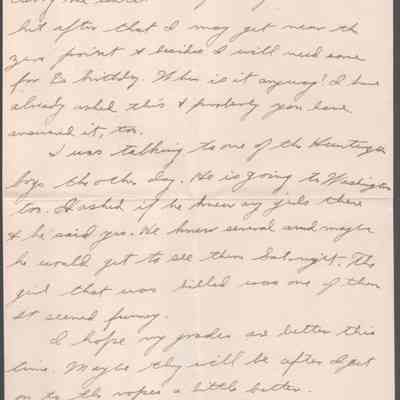 but after that I may get near the
zero point & besides I will need some
for B's birthday. When is it anyway! I have
already asked this & probably you have
answered it, too.
I was talking to one of the Huntington
boys the other day. He is going to Washington
too. I asked if he knew any girls there
& he said yes. He knew several and maybe
he would get to see them Sat. night. The
girl that was killed was one of them
It seemed funny.
I hope my grades are better this
time. Maybe they will be after I get
on to the ropes a little better.